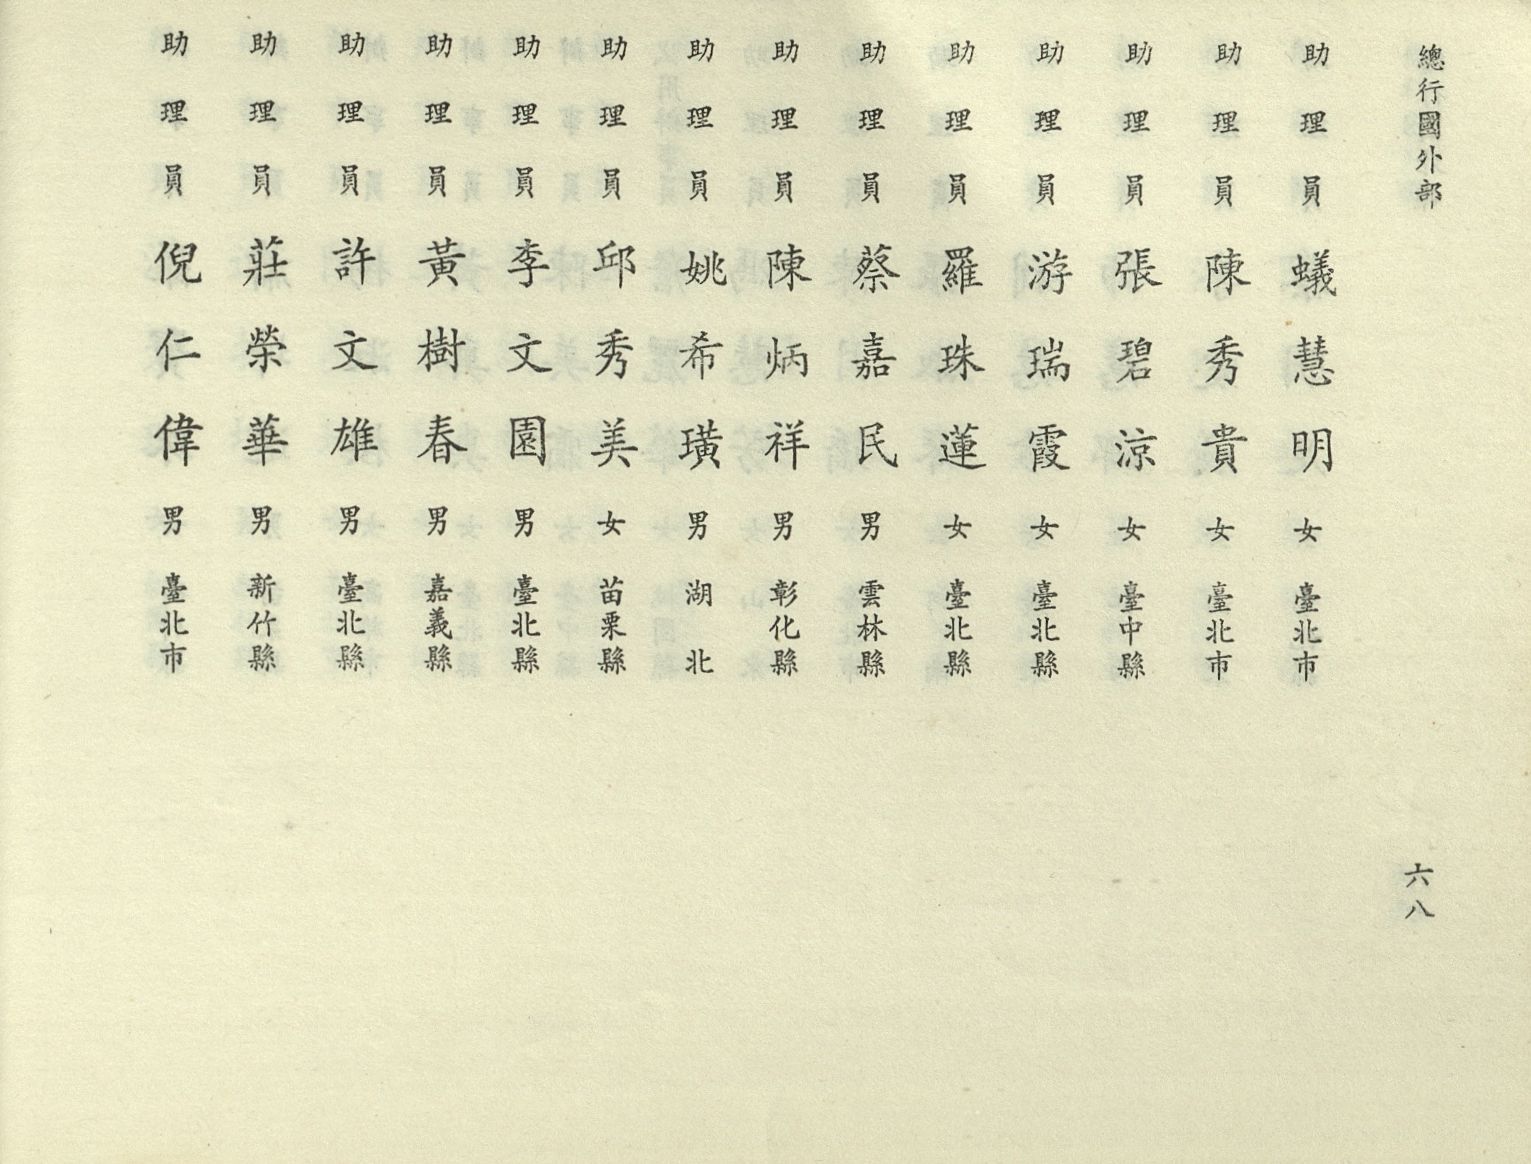 總行國外部
六八
助理員 蟻慧明 女 臺北市
助理員 陳秀貴 女 臺北市
助理員 張碧涼 女 臺中縣
助理員 游瑞霞 女 臺北縣
助理員 羅珠蓮 女 臺北縣
助理員 蔡嘉民 男 雲林縣
助理員 陳炳祥 男 彰化縣
助理員 姚希璜 男 湖北
助理員 邱秀美 女 苗栗縣
助理員 李文園 男 臺北縣
助理員 黃樹春 男 嘉義縣
助理員 許文雄 男 臺北縣
助理員 莊榮華 男 新竹縣
助理員 倪仁偉 男 臺北市